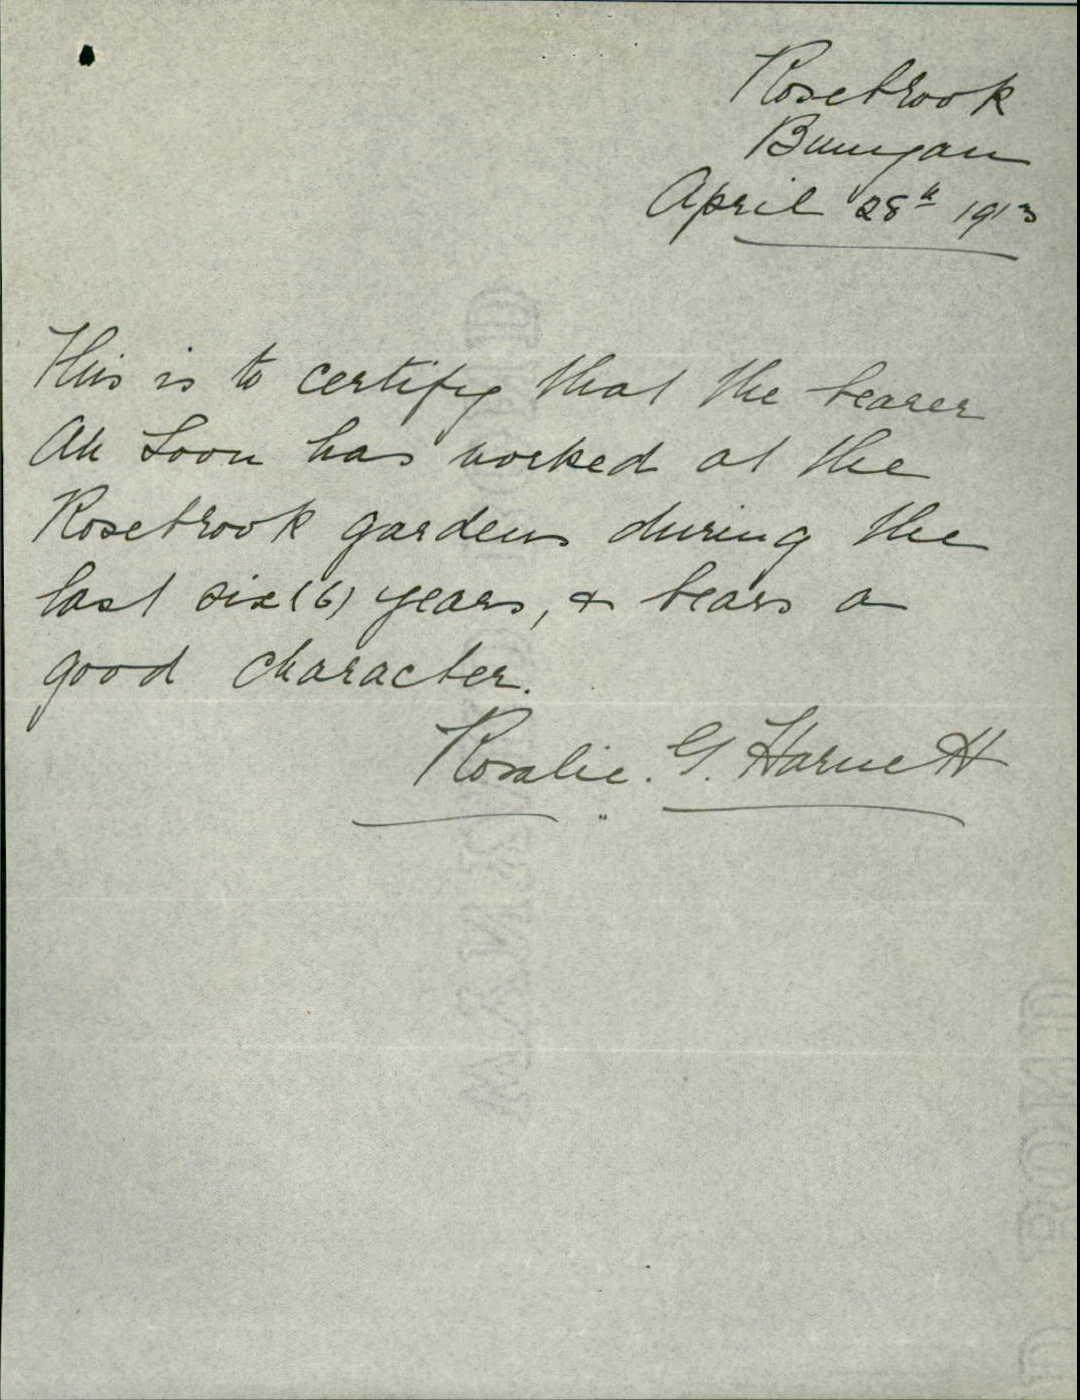 Rosebrook
Bunyan
April 28th 1913
This is to certify that the bearer
Ah Soon has worked at the
Rosebrook gardens during the
last six (6) years, & bears a
good character.
Rosalie. G. Harnett